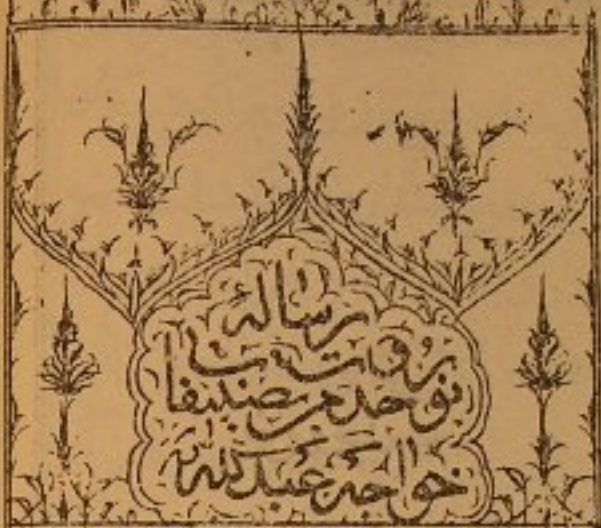 رسالهٔ
نور وحدت من تصنیفات
خواجه عبدالله